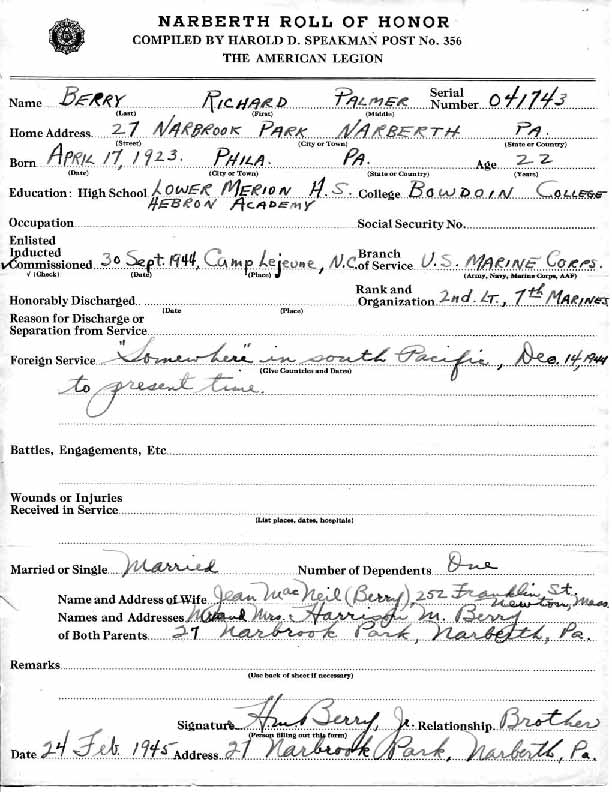 NARBERTH ROLL OF HONOR
COMPILED BY HAROLD D. SPEAKMAN POST No. 356
THE AMERICAN LEGION
Name BERRY RICHARD PALMER Serial Number 041743
(Last) (First) (Middle)
Home Address 27 NARBROOK PARK NARBERTH PA.
(Street) (City or Town) (State or Country)
Born APRIL 17, 1923. PHILA. PA. Age 22
(Date) (City or Town) (State or Country) (Years)
Education: High School LOWER MERION H.S. College BOWDOIN COLLEGE
HEBRON ACADEMY
Occupation Social Security No.
Enlisted
Inducted
✓Commissioned 30 Sept. 1944, Camp Lejeune, N.C. Branch of Service U.S. MARINE CORPS.
√ (Check) (Date) (Place) (Army, Navy, Marine Corps, AAF)
Honorably Discharged Rank and Organization 2nd. LT., 7th MARINES
(Date (Place)
Reason for Discharge or
Separation from Service
Foreign Service "Somewhere" in south Pacific, Dec. 14, 1944
(Give Countries and Dates)
to present time.
Battles, Engagements, Etc
Wounds or Injuries
Received in Service
(List places, dates, hospitals)
Married or Single Married Number of Dependents One
Name and Address of Wife Jean MacNeil (Berry), 252 Franklin St.
Newton, Mass.
Names and Addresses Mr and Mrs. Harrison M. Berry
of Both Parents 27 Narbrook Park, Narberth, Pa.
Remarks
(Use back of sheet if necessary)
Signature Hm Berry, Jr. Relationship Brother
(Person filling out this form)
Date 24 Feb 1945 Address 27 Narbrook Park, Narberth, Pa.